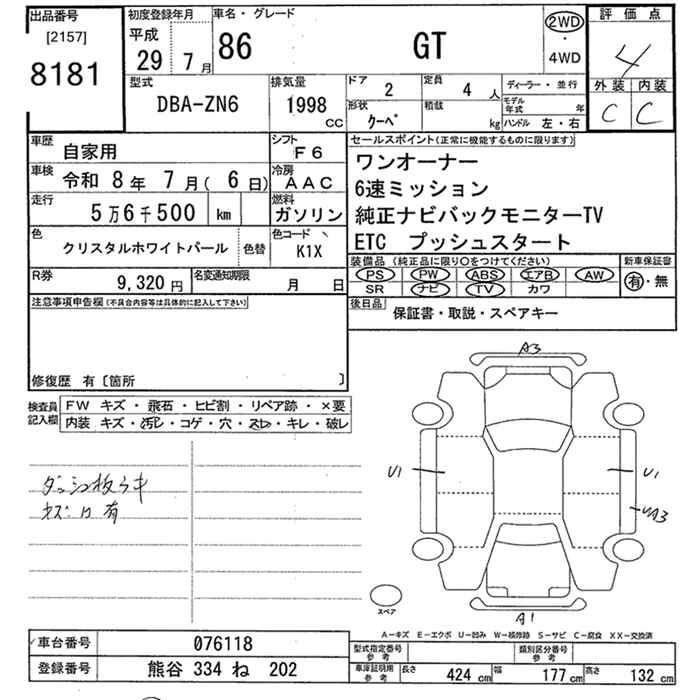 出品番号
[2157]
8181
初度登録年月
平成
29年 7月
車名・グレード
86 GT
2WD
・
4WD
評価点
4
外装 内装
C C
型式
DBA-ZN6
排気量
1998
CC
ドア
2
定員
4 人
形状
クーペ
積載
kg
ディーラー・並行
モデル年式 年
ハンドル 左・右
車歴
自家用
シフト
F6
車検
令和 8年 7月( 6日)
冷房
AAC
走行
5万6千500 km
燃料
ガソリン
色
クリスタルホワイトパール
色替
色コード
K1X
R券
9,320円
名変通知期限
月 日
セールスポイント(正常に機能するものに限ります)
ワンオーナー
6速ミッション
純正ナビバックモニターTV
ETC プッシュスタート
装備品 (純正品に限り○をつけてください)
PS PW ABS エアB AW
SR ナビ TV カワ
新車保証書
有・無
後日品
保証書・取説・スペアキー
注意事項申告欄(不具合内容等は具体的に記入して下さい)
修復歴 有〔箇所 〕
検査員記入欄
FW キズ・飛石・ヒビ割・リペア跡・×要
内装 キズ・汚レ・コゲ・穴・スレ・キレ・破レ
キズ 有
A3
U1
U1
UA3
A1
スペア
A−キズ E−エクボ U−凹み W−補修跡 S−サビ C−腐食 XX−交換済
車台番号
076118
登録番号
熊谷 334 ね 202
型式指定番号
参考
類別区分番号
参考
車庫証明用
参考
長さ 424 cm 幅 177 cm 高さ 132 cm